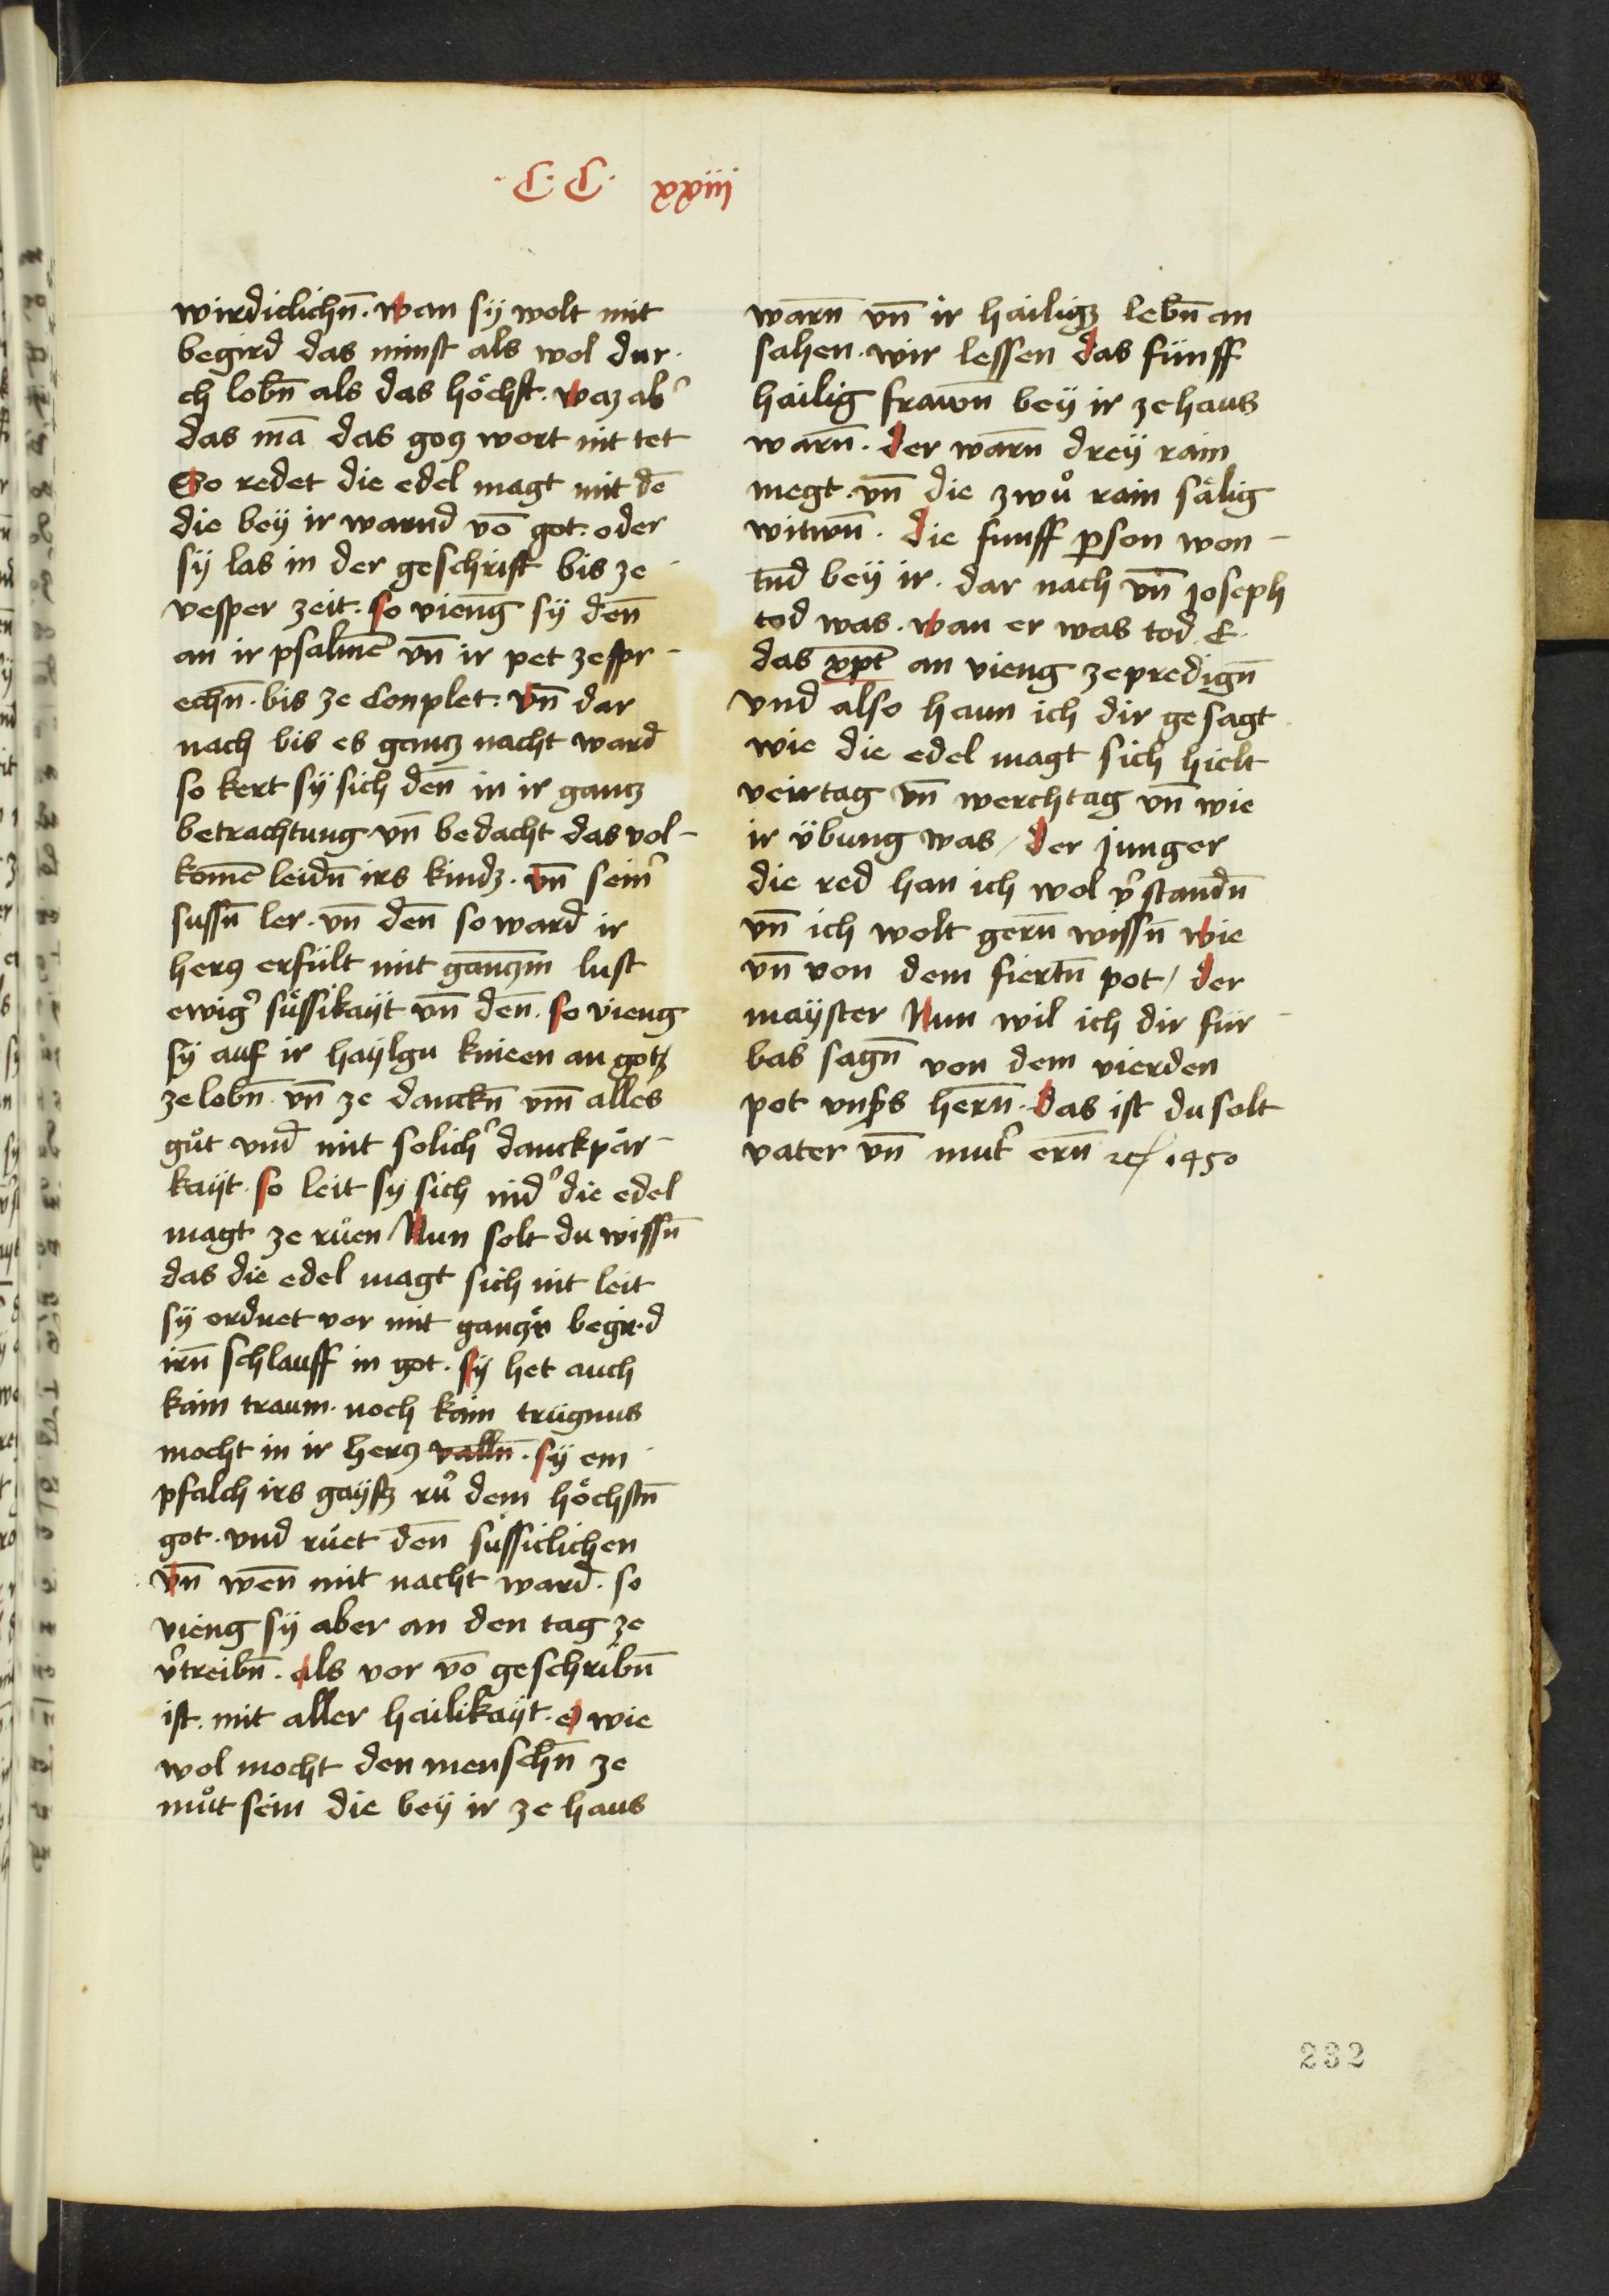 ·C·C· xxiiij
wirdiclichn̄. wan sÿ wolt mit
begird das minst als wol dur-
ch lobn̄ als das höchst. waz ab͛
das mā das gotz wort nit tet
So redet die edel magt mit dē
die beÿ ir warnd vō got. oder
sÿ las in der geschrift bis ze
vesper zeit. so vieng sÿ den̄
an ir psalmē vn̄ ir pet ze spr-
echn̄. bis ze Conplet. vn̄ dar
nach bis es gantz nacht ward
so kert sÿ sich den̄ in ir gantz
betrachtung vn̄ bedacht das vol-
komē leidn̄ irs kindz. vn̄ sein͛
sussn̄ ler. vn̄ den̄ so ward ir
hertz erfült mit gantzm̄ lust
ewig͛ süssikaÿt vn̄ den̄. so vieng
sÿ auf ir haÿlgn knieen an gotz
ze lobn̄ vn̄ ze danckn̄ vm̄ alles
gůt vnd mit solich͛ danckpär-
kaÿt. so leit sÿ sich nid͛ die edel
magt ze růen Nun solt du wissn̄
das die edel magt sich nit leit
sÿ ordnet vor mit gantz͛ begir.d
irn̄ schlauff in got. sÿ het auch
kain traum. noch kain trügnus
mocht in ir hertz valln̄. sÿ em
pfalch irs gaÿstz rů dem höchstn̄
got. vnd růet den̄ süssiclichen
vn̄ wen̄ mit nacht ward. so
vieng sÿ aber an den tag ze
v͛treibn̄. als vor vō geschribn̄
ist. mit aller hailikaÿt. o wie
wol mocht den menschn̄ ze
můt sein die beÿ ir ze haus
warn̄ vn̄ ir hailigz lebn̄ an
sahen. wir lessen das fünff
hailig frawn̄ beÿ ir ze haus
warn̄. der warn̄ dreÿ rain
megt. vn̄ die zwů rain sälig
witwn̄. die funff ꝑson won-
tnd beÿ ir. dar nach vn̄ joseph
tod was. wan er was tod E.
das xp̄t an vieng ze predign̄
vnd also haun ich dir gesagt
wie die edel magt sich hielt
veirtag vn̄ werchtag vn̄ wie
ir übung was / der junger
die red han ich wol v͛standn̄
vn̄ ich wolt gern̄ wissn̄ wie
vn̄ von dem fiertn̄ pot / der
maÿster Nun wil ich dir für
bas sagn̄ von dem vierden
pot vnsrs hern̄. das ist du solt
vater vn̄ mut͛ ern̄ ⁊c 1450
232